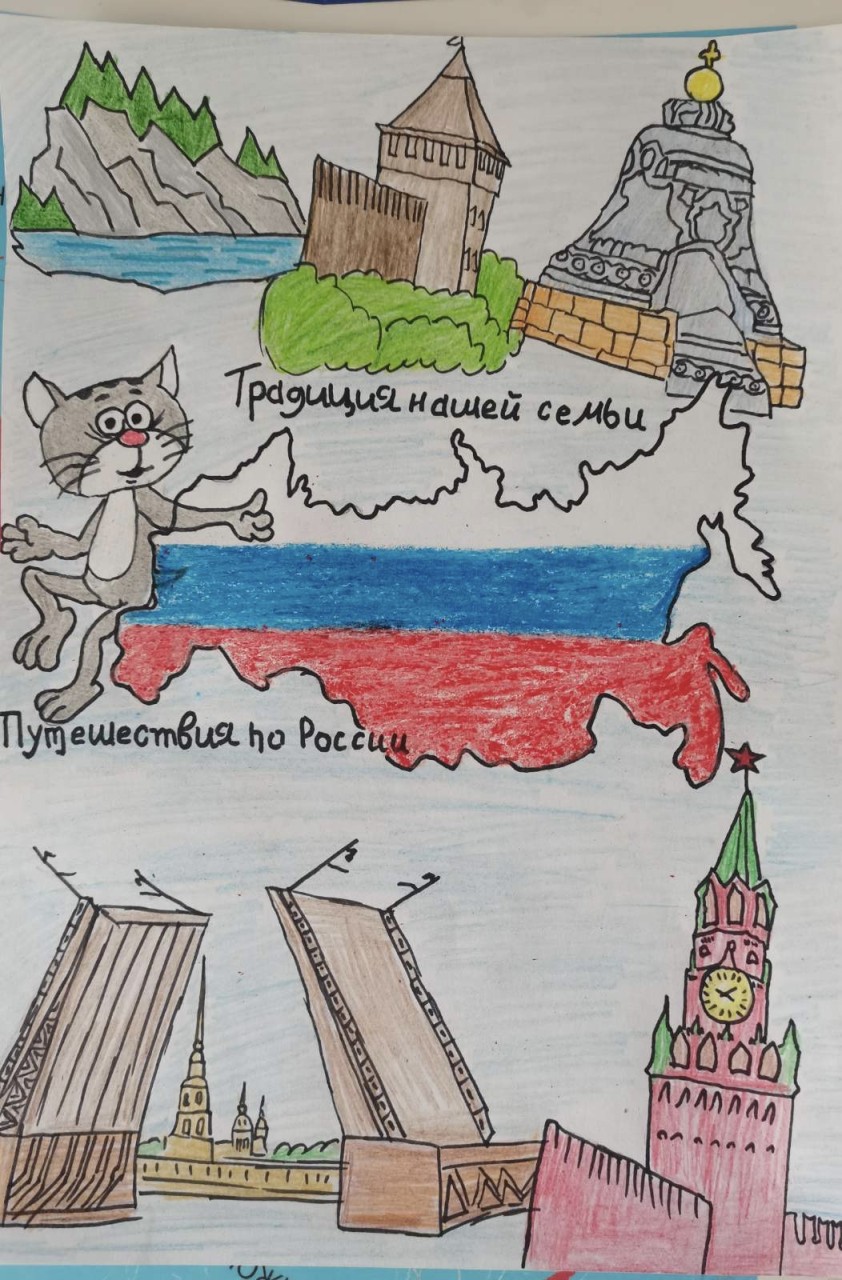 Традиция нашей семьи
Путешествия по России